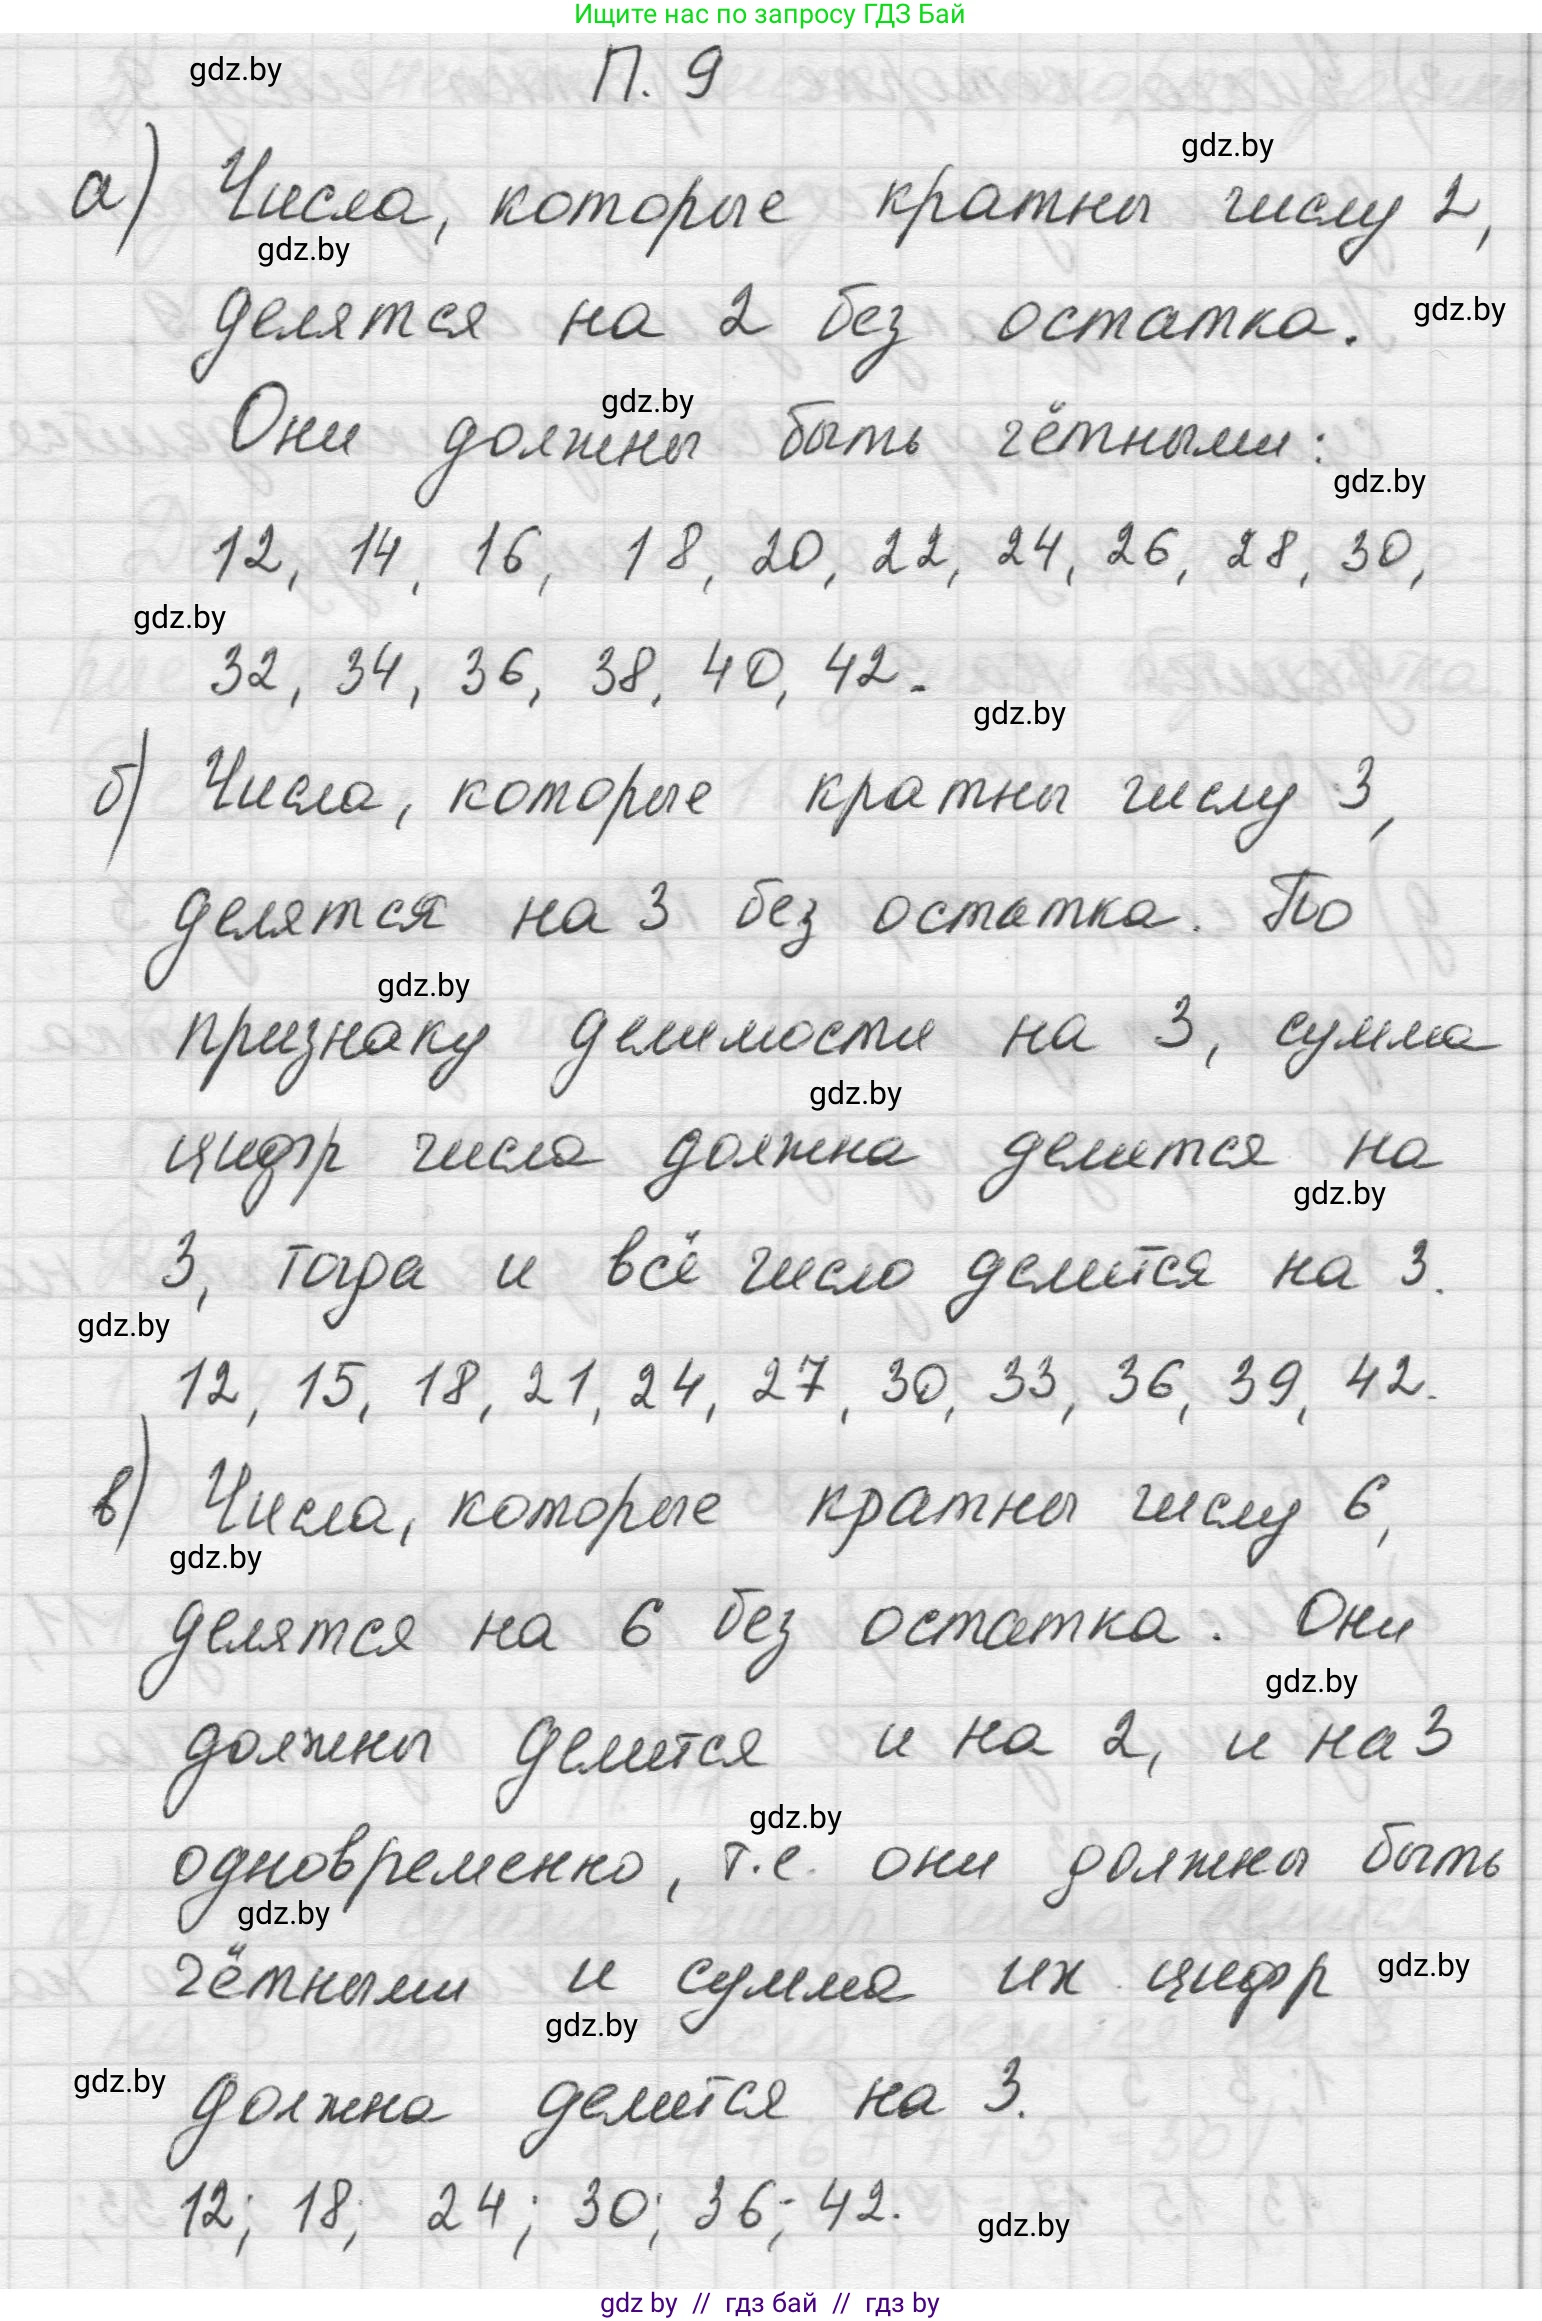 Ищите нас по запросу ГДЗ Бай
gdz.by
П. 9
gdz.by
а) Числа, которые кратны числу 2,
gdz.by
делятся на 2 без остатка.
gdz.by
gdz.by
Они должны быть чётными:
gdz.by
12, 14, 16, 18, 20, 22, 24, 26, 28, 30,
gdz.by
32, 34, 36, 38, 40, 42.
gdz.by
б) Числа, которые кратны числу 3,
делятся на 3 без остатка. По
gdz.by
признаку делимости на 3, сумма
gdz.by
цифр числа должна делится на
gdz.by
3, тогда и всё число делится на 3.
gdz.by
12, 15, 18, 21, 24, 27, 30, 33, 36, 39, 42.
в) Числа, которые кратны числу 6,
gdz.by
делятся на 6 без остатка. Они
gdz.by
должны делится и на 2, и на 3
gdz.by
одновременно, т.е. они должны быть
gdz.by
чётными и сумма их цифр
gdz.by
gdz.by
gdz.by
должна делится на 3.
12; 18; 24; 30; 36; 42.
gdz.by
gdz by // гдз бай // гдз by